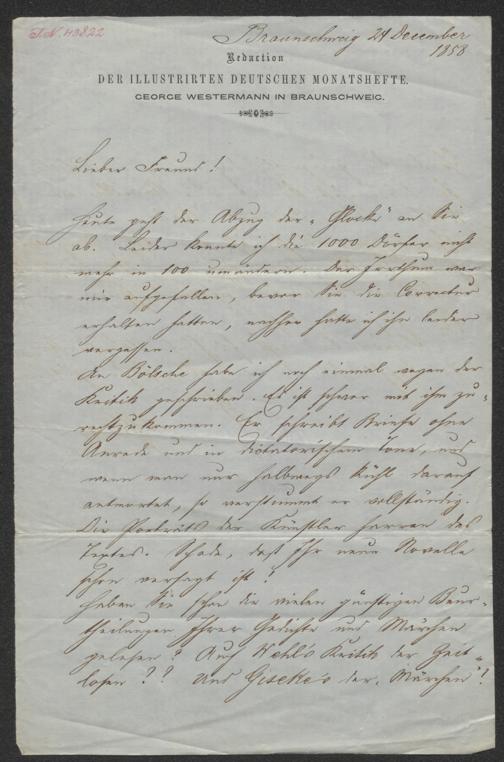 I.N. 43822
Braunschweig 24 December
1858
Redaction
DER ILLUSTRIRTEN DEUTSCHEN MONATSHEFTE.
GEORGE WESTERMANN IN BRAUNSCHWEIG.
Lieber Freund!
Heute geht der Abzug der „Glocke“ an Sie
ab. Leider konnte ich die 1000 Dörfer nicht
mehr in 100 umändern. Der Irrthum war
mir aufgefallen, bevor Sie die Correctur
erhalten hatten, nachher hatte ich ihn leider
vergessen.
An Bölsche habe ich noch einmal wegen der
Kritik geschrieben. Es ist schwer mit ihm zu-
rechtzukommen. Er schreibt Briefe ohne
Anrede und in dictatorischem Tone, und
wenn man nur halbwegs kühl darauf
antwortet, so verstummt er vollständig.
Die Portraits der Künstler harren des
Textes. Schade, daß Ihr neue Novelle
schon versagt ist!
Haben Sie schon die vielen günstigen Beur-
theilungen Ihrer Gedichte und Märchen
gelesen? Auch Wehl's Kritik der Zeit-
losen?? Und Giseke's der Märchen!